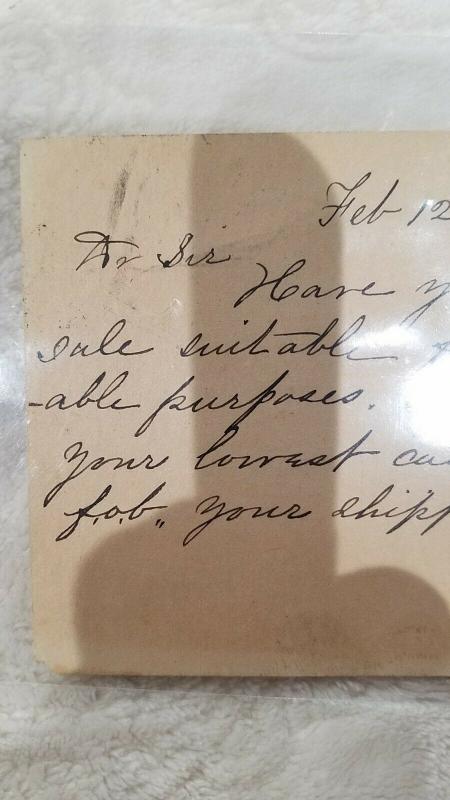 Feb 12
Dr Sir
Have
sale suitable
-able purposes.
your lowest
f.o.b., your shipp